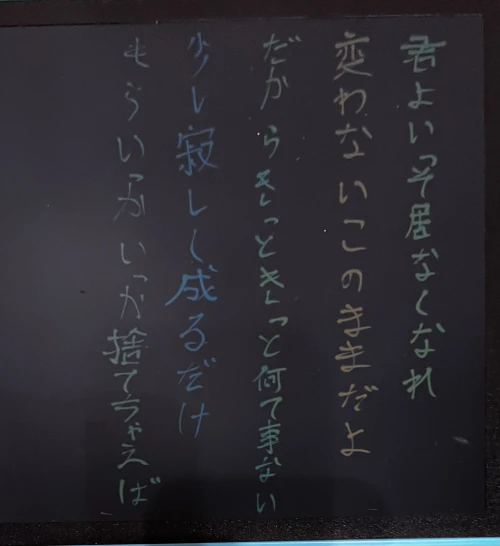 君よいっそ居なくなれ
変わないこのままだよ
だからきっときっと何て事ない
少し寂しく成るだけ
もういっかいっか捨てちゃえば